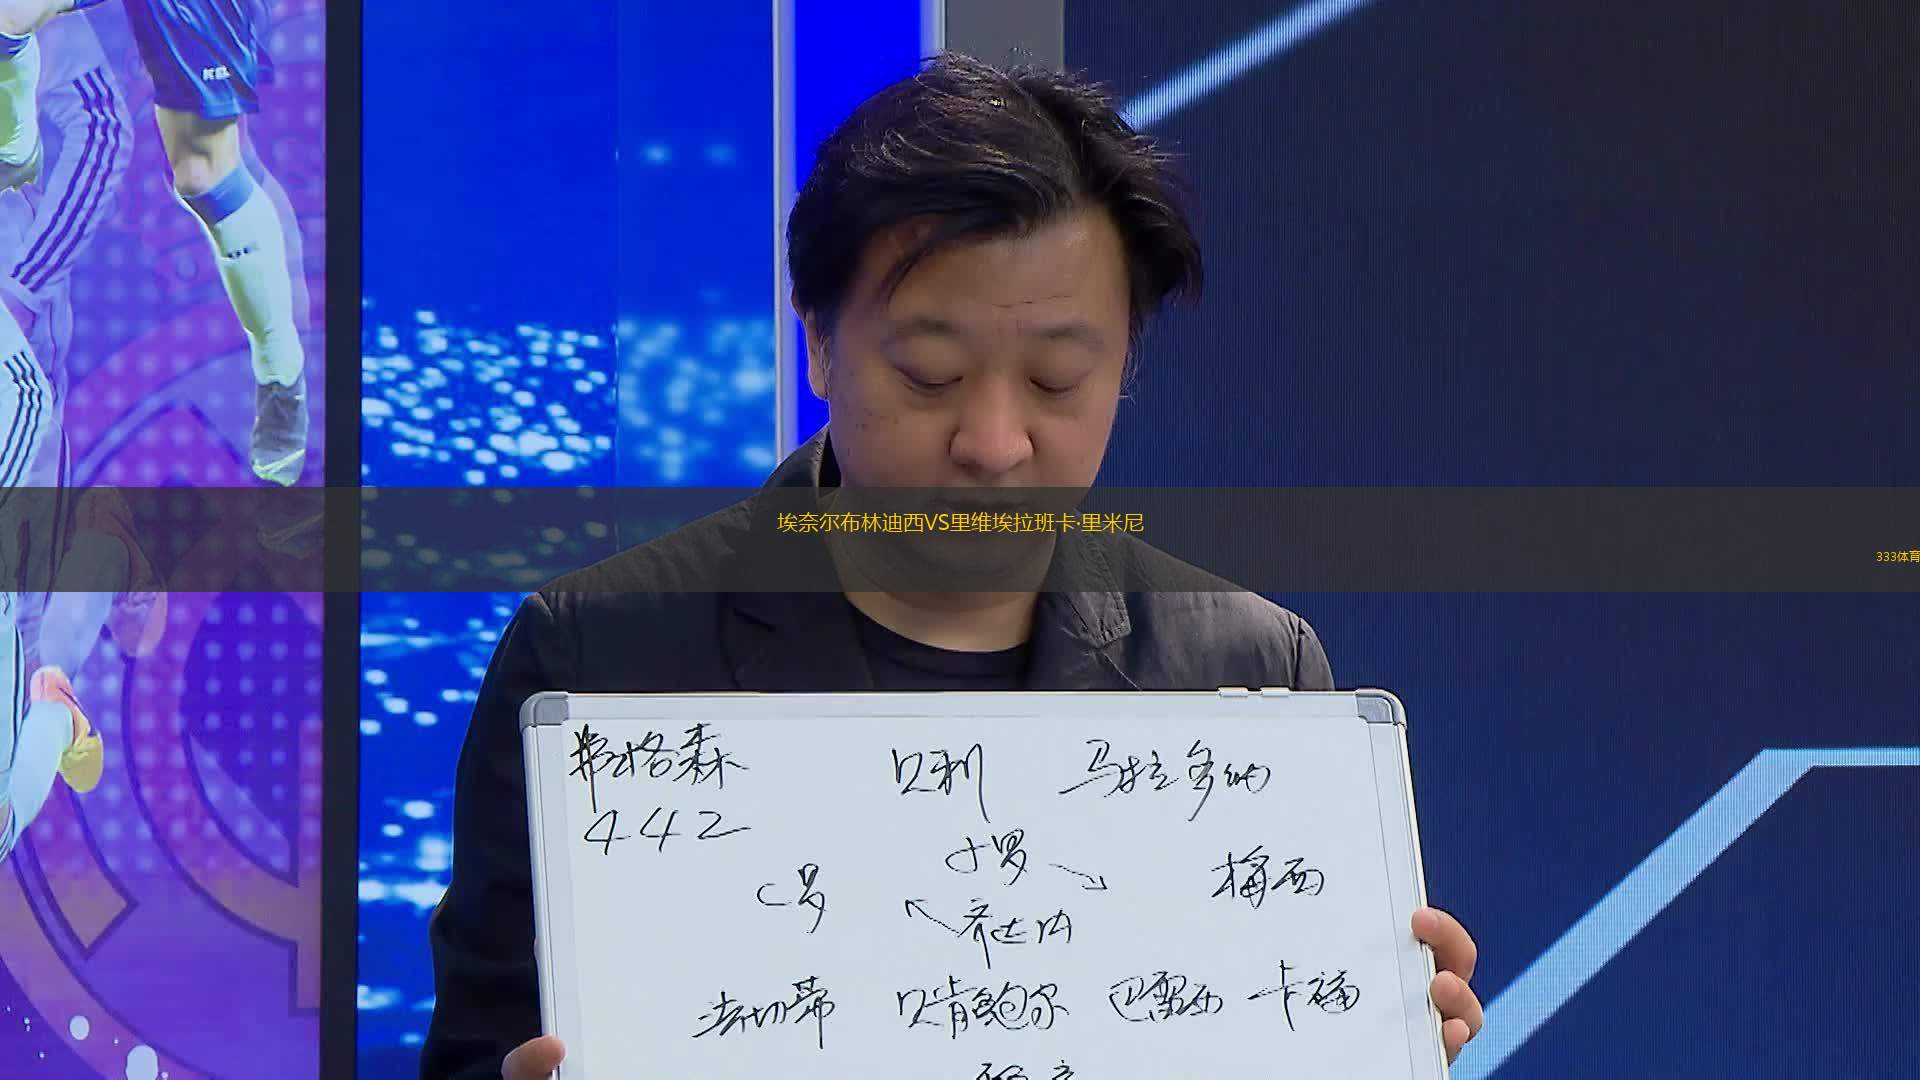 埃奈尔布林迪西VS里维埃拉班卡·里米尼
333体育
弗格森 贝利 马拉多纳
442
小罗
C罗 梅西
齐达内
法切蒂 贝肯鲍尔 巴雷西 卡福